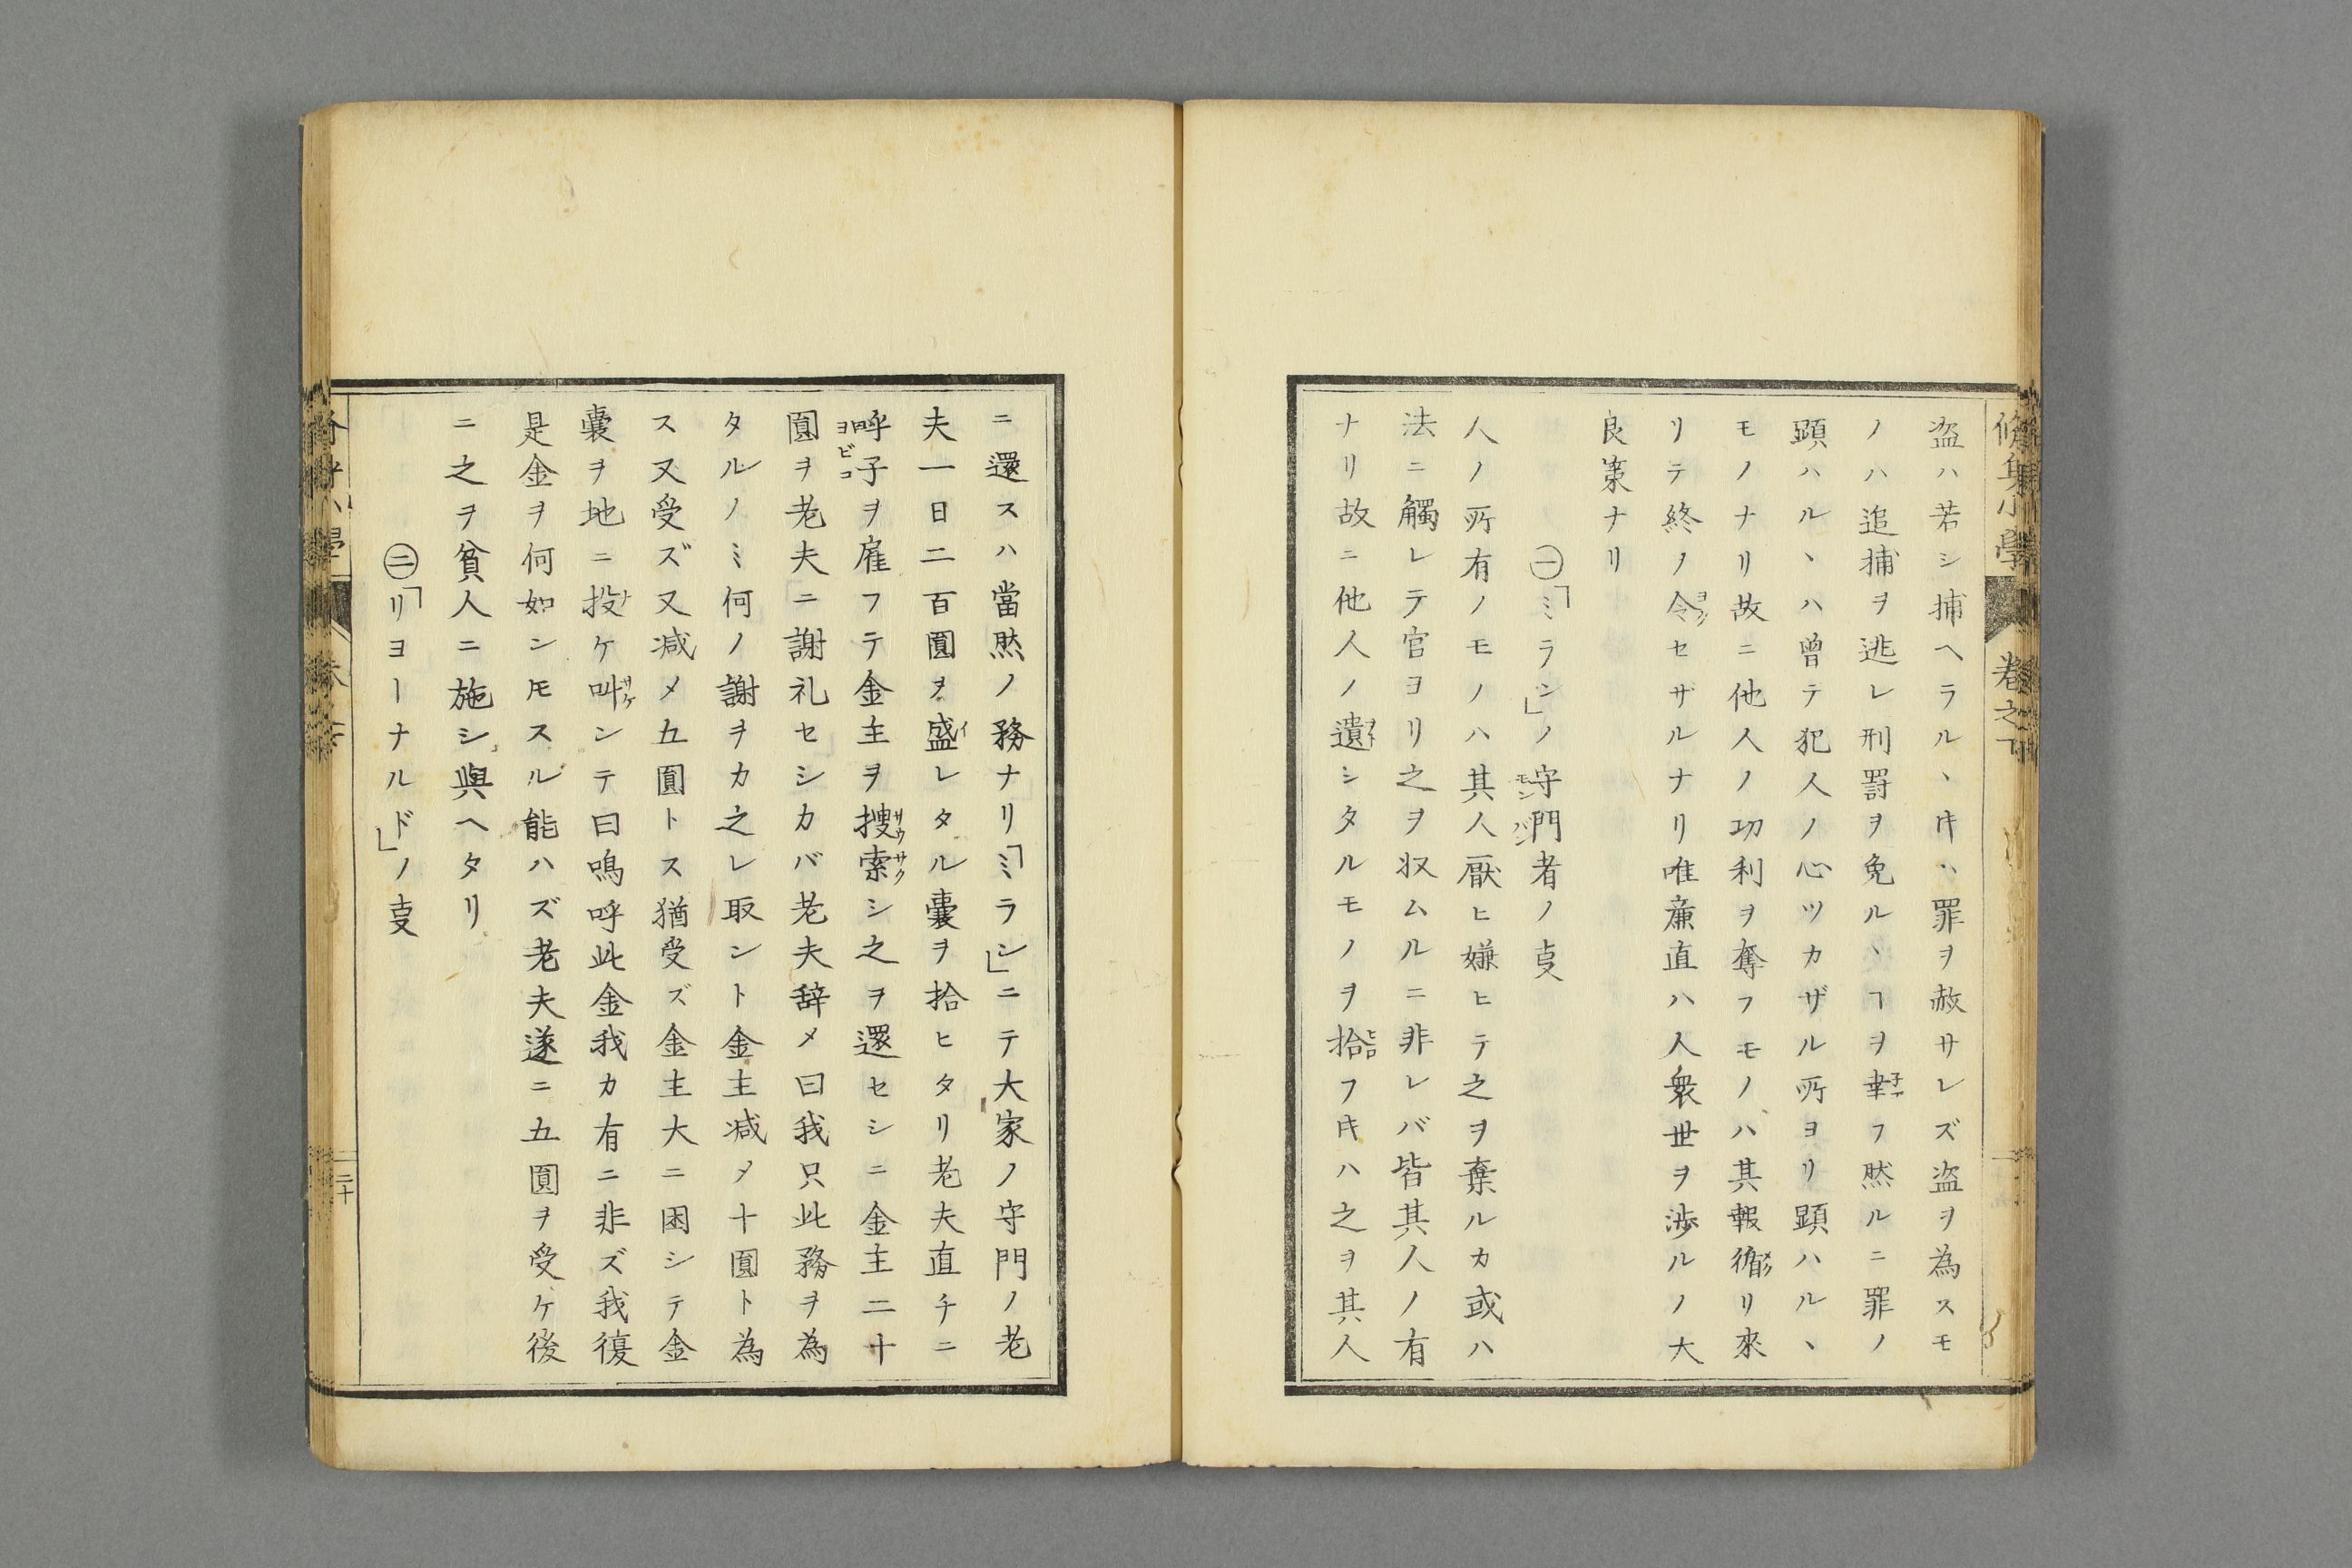 盗ハ若シ捕ヘラルヽ𪜈ハ罪ヲ赦サレズ盗ヲ為スモ
ノハ追捕ヲ逃レ刑罰ヲ免ルヽヿヲ幸フ然ルニ罪ノ
顕ハルヽハ曽テ犯人ノ心ツカザル所ヨリ顕ハルヽ
モノナリ故ニ他人ノ功利ヲ奪フモノハ其報循リ來
リテ終ノ令セザルナリ唯廉直ハ人衆世ヲ渉ルノ大
良策ナリ
㊀「ミラン」ノ守門者ノ㕝
人ノ所有ノモノハ其人厭ヒ嫌ヒテ之ヲ棄ルカ或ハ
法ニ觸レテ官ヨリ之ヲ収ムルニ非レバ皆其人ノ有
ナリ故ニ他人ノ遺シタルモノヲ拾フ𪜈ハ之ヲ其人
ニ還スハ當然ノ務ナリ「ミラン」ニテ大家ノ守門ノ老
夫一日二百圓ヲ盛レタル嚢ヲ拾ヒタリ老夫直チニ
呼子ヲ雇フテ金主ヲ捜索シ之ヲ還セシニ金主二十
圓ヲ老夫ニ謝礼セシカバ老夫辞メ曰我只此務ヲ為
タルノミ何ノ謝ヲカ之レ取ント金主減メ十圓ト為
ス又受ズ又減メ五圓トス猶受ズ金主大ニ困シテ金
嚢ヲ地ニ投ケ叫ンテ曰嗚呼此金我カ有ニ非ズ我復
是金ヲ何如ンモスル能ハズ老夫遂ニ五圓ヲ受ケ後
ニ之ヲ貧人ニ施シ與ヘタリ
㊁「リヨーナルド」ノ㕝
小學
卷之下
二十